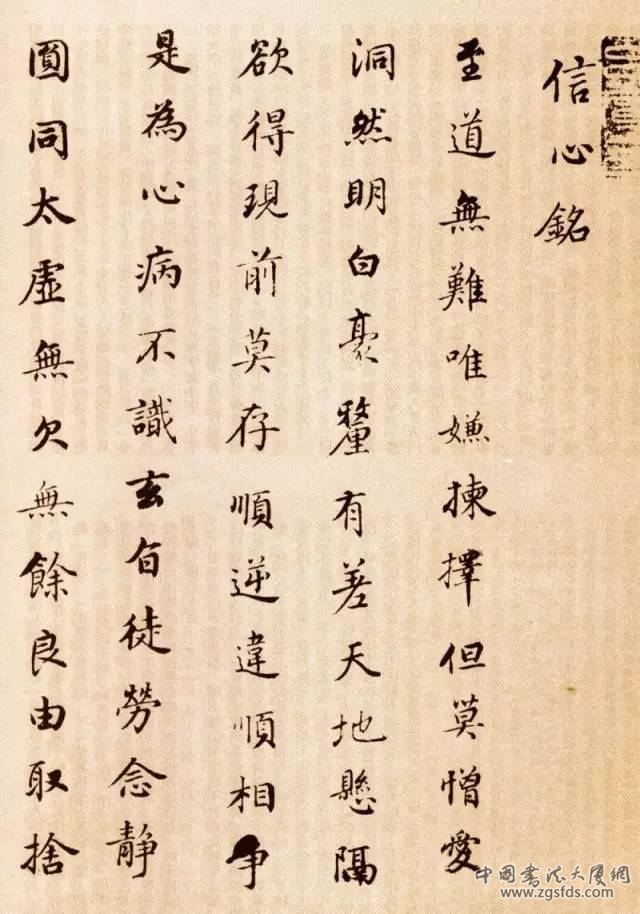 信心銘
至道無難唯嫌揀擇但莫憎愛
洞然明白豪釐有差天地懸隔
欲得現前莫存順逆違順相爭
是為心病不識玄旨徒勞念静
圓同太虛無欠無餘良由取捨
中国书法大厦網
www.zgsfds.com